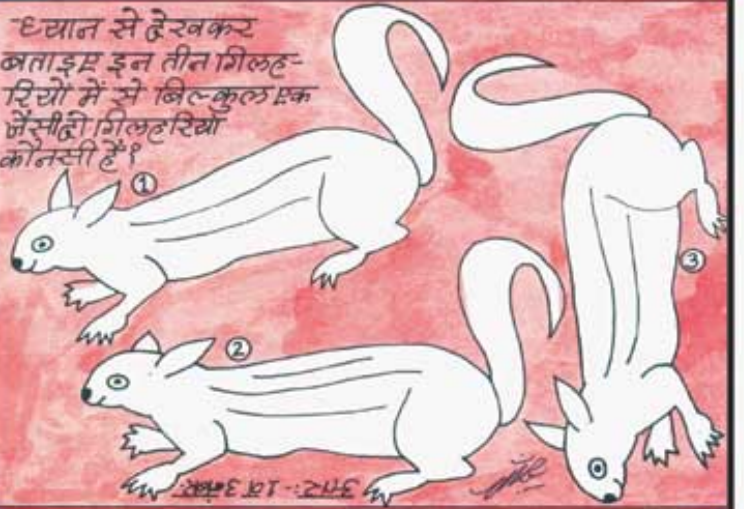 ध्यान से देखकर
बताइए इन तीन गिलह-
रियों में से बिल्कुल एक
जैसी दो गिलहरियां
कौनसी हैं?
1
2
3
उत्तर:- 1 व 3 नंबर